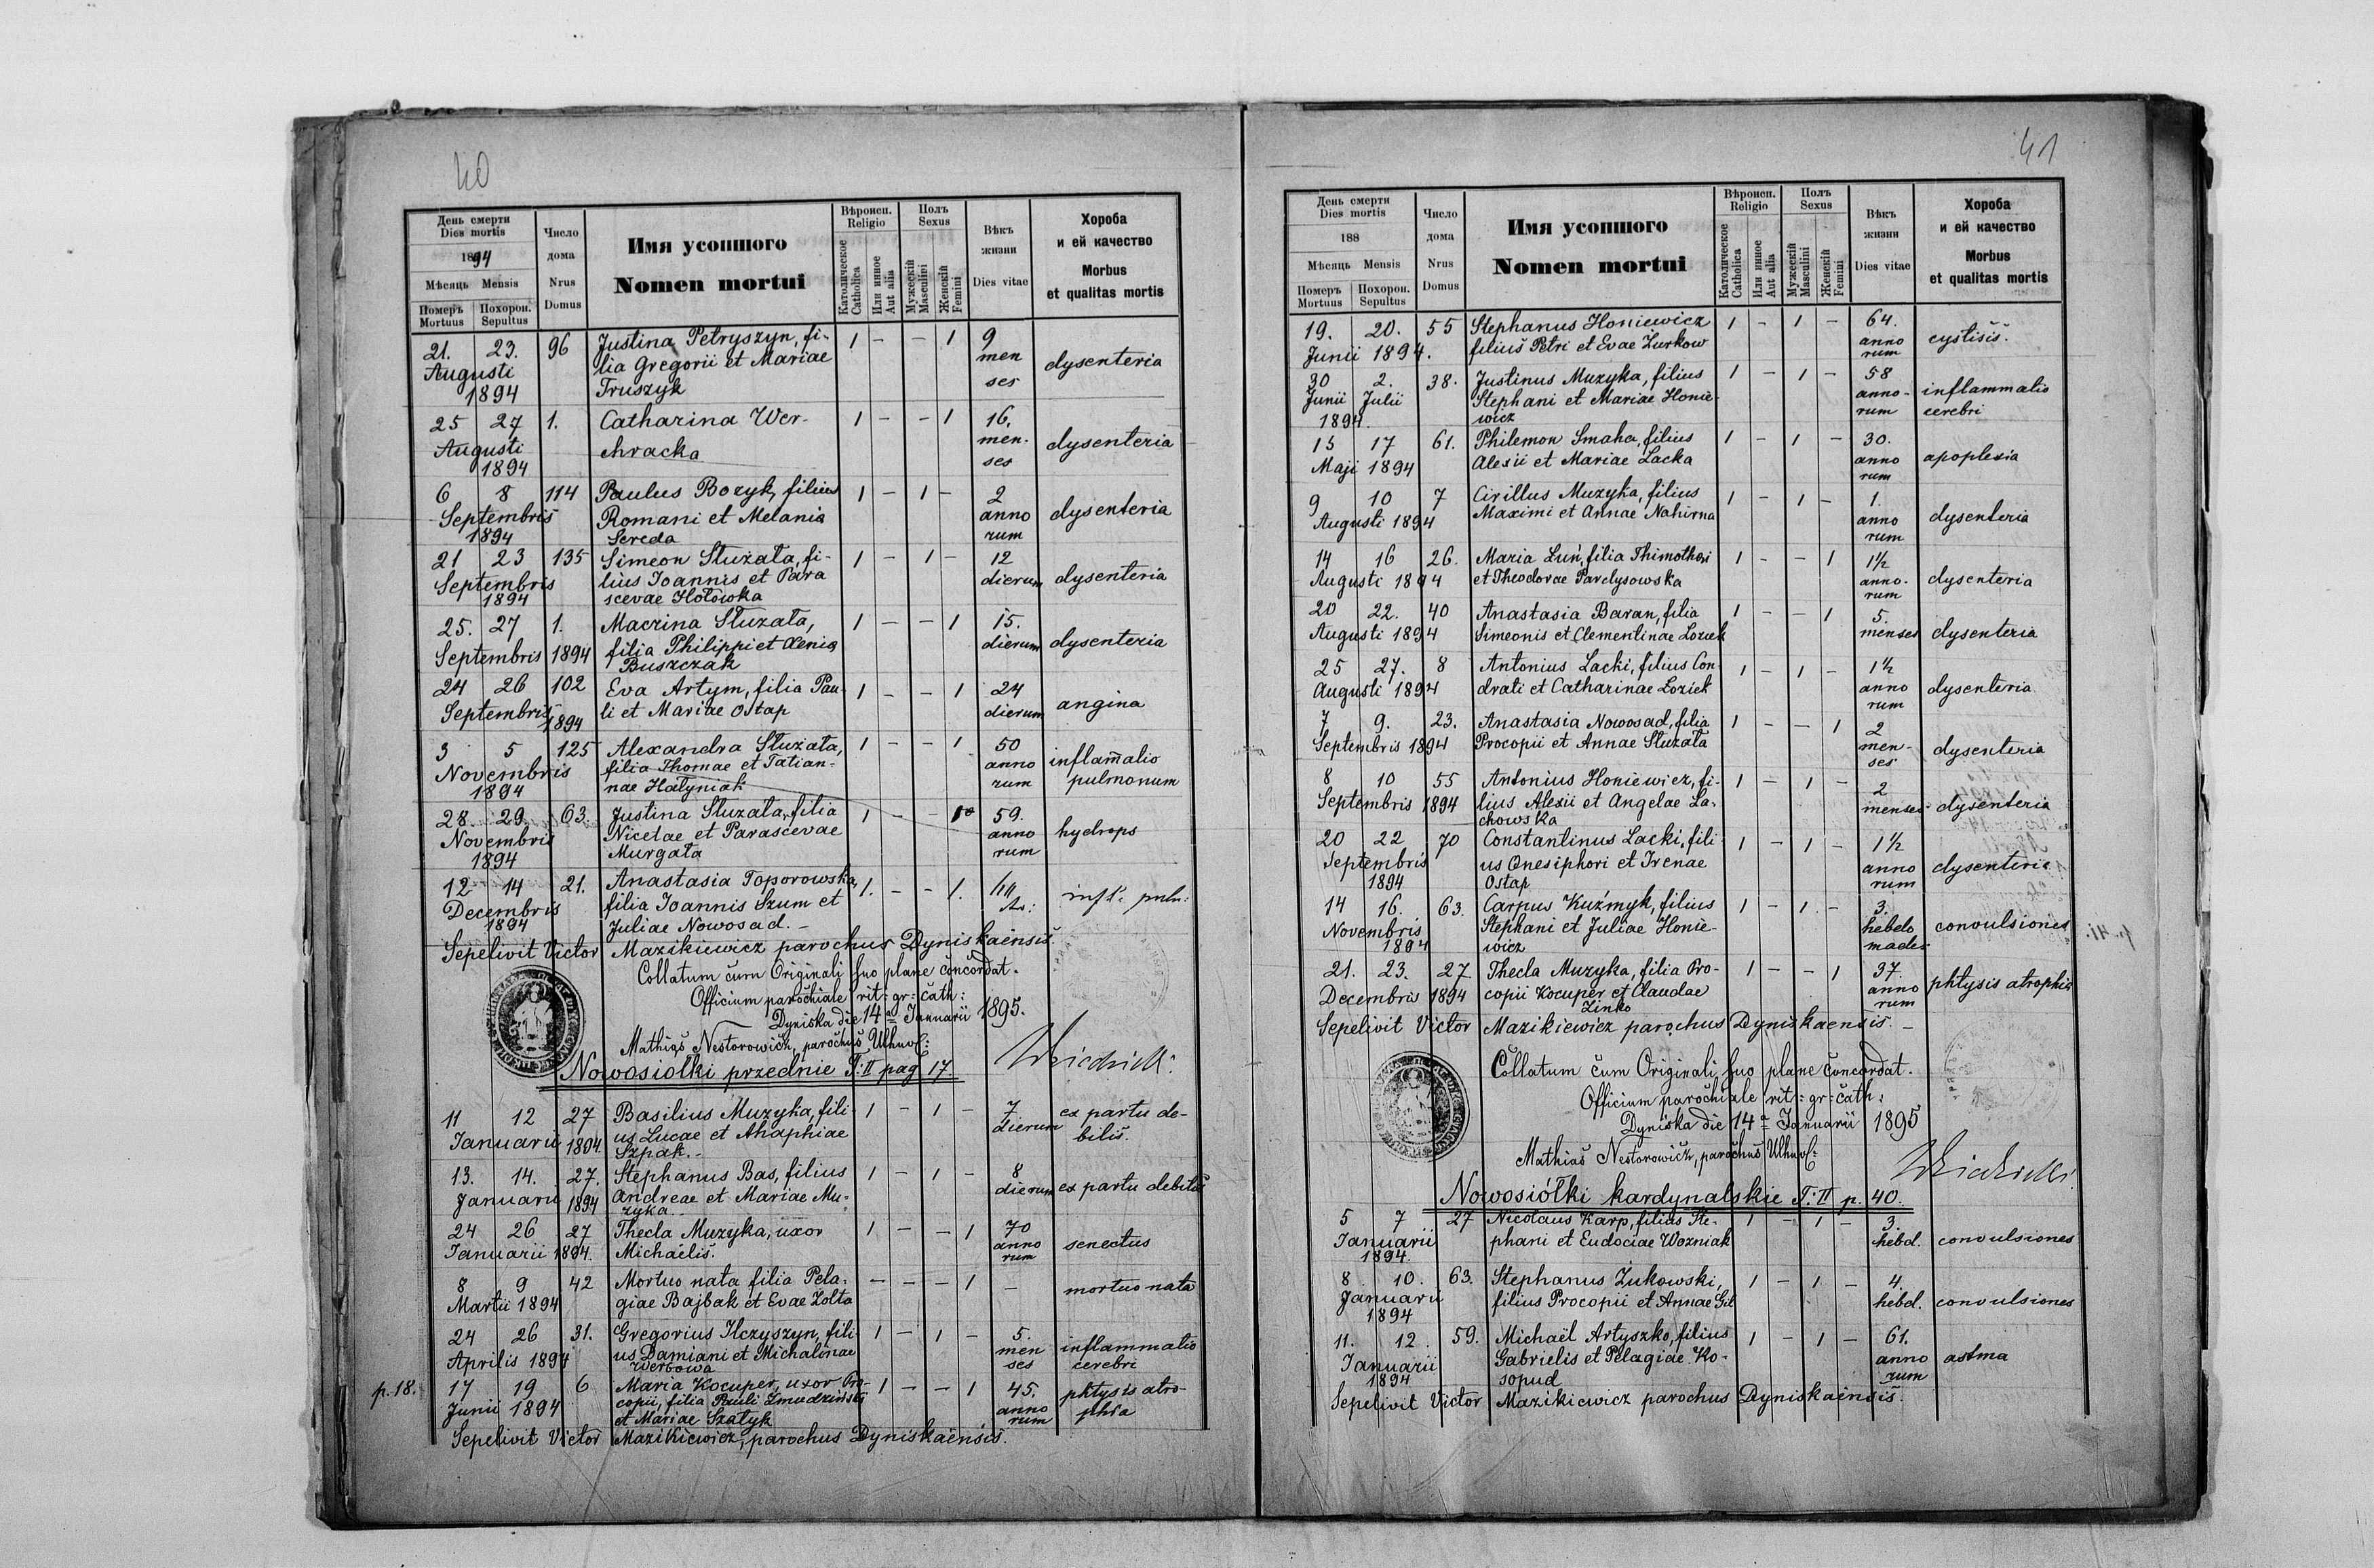 40
День смерти
Dies mortis
1894
Мѣсяць Mensis
Померъ Mortuus
Похорон. Sepultus
Число дома
Nrus Domus
Имя усопшого
Nomen mortui
Вѣроисп.
Religio
Католическое Catholica
Или инное Aut alia
Полъ
Sexus
Мужескій Masculini
Женскій Femini
Вѣкъ жизни
Dies vitae
Хороба
и ей качество
Morbus
et qualitas mortis
21. 23. 96 Justina Petryszyn, fi- 1 – – 1 9
Augusti lia Gregorii et Mariae men dysenteria
1894 Truszyk ses
25 27 1. Catharina Wer- 1 – – 1 16,
Augusti chracka men- dysenteria
1894 ses
6 8 114 Paulus Bozyk, filius 1 – 1 – 2
Septembris Romani et Melania anno dysenteria
1894 Sereda rum
21 23 135 Simeon Słuzała, fi- 1 – 1 – 12
Septembris lius Joannis et Para dierum dysenteria
1894 scevae Hołowka
25. 27 1. Macrina Słuzała, 1 – – 1 15.
Septembris 1894 filia Philippi et Xenia dierum dysenteria
Buszczak
24 26 102 Eva Artym, filia Pau- 1 – – 1 24
Septembris 1894 li et Mariae Ostap dierum angina
3 5 125 Alexandra Słuzała, 1 – – 1 50
Novembris filia Thomae et Tatian- anno inflam̄atio
1894 nae Hałyniak rum pulmonum
28. 29. 63. Justina Słuzała, filia 1 – – 1 59.
Novembris Nicetae et Parascevae anno hydrops
1894 Murgała rum
12 14 21. Anastasia Toporowska, 1. – – 1.
Decembris filia Joannis Szum et infl: pulm:
1894 Juliae Nowosad. –
Sepelivit Victor Mazikiewicz parochus Dyniskaënsis.
Collatum cum Originali suo plane concordat.
Officium parochiale rit: gr: cath:
Dyniska die 14ª Januarii 1895.
Mathias Nestorowicz, parochus Uhnov:
Nowosiołki przednie T: II pag 17
11 12 27 Basilius Muzyka, fili- 1 – 1 – 7 ex partu de-
Januarii 1894. us Lucae et Ahaphiae dierum bilis.
Szpak. –
13. 14. 27. Stephanus Bas, filius 1 – 1 – 8
Januarii 1894 Andreae et Mariae Mu- dierum ex partu debilis
zyka. –
24 26 27 Thecla Muzyka, uxor 1 – – 1 70
Januarii 1894. Michaelis. anno rum senectus
8 9 42 Mortuo nata filia Pela- – – – 1 – mortuo nata
Martii 1894 giae Bajbak et Evae Zolta
24 26 31. Gregorius Ilczyszyn, fili- 1 – 1 – 5. inflammatio
Aprilis 1894 us Damiani et Michalinae men ses cerebri
Werbowa
p. 18. 17 19 6 Maria Kocuper, uxor Pro- 1 – – 1 45. phtysis atro-
Junii 1894 copii, filia Pauli Zmudziński anno phia
et Mariae Szałyk rum
Sepelivit Victor Mazikiewicz, parochus Dyniskaënsis.
41
День смерти
Dies mortis
188
Мѣсяць Mensis
Померъ Mortuus
Похорон. Sepultus
Число дома
Nrus Domus
Имя усопшого
Nomen mortui
Вѣроисп.
Religio
Католическое Catholica
Или инное Aut alia
Полъ
Sexus
Мужескій Masculini
Женскій Femini
Вѣкъ жизни
Dies vitae
Хороба
и ей качество
Morbus
et qualitas mortis
19. 20. 55 Stephanus Honiewicz 1 – 1 – 64.
Junii 1894. filius Petri et Evae Zurkow anno rum cystisis.
30 2. 38. Justinus Muzyka, filius 1 – 1 – 58
Junii Julii Stephani et Mariae Honie- anno- inflammatio
1894. wicz rum cerebri
15 17 61. Philemon Smaha, filius 1 – 1 – 30.
Maji 1894 Alexii et Mariae Lacka anno rum apoplexia
9 10 7 Cirillus Muzyka, filius 1 – 1 – 1.
Augusti 1894 Maximi et Annae Nahirna anno rum dysenteria
14 16 26. Maria Luń, filia Thimothei 1 – – 1 1½
Augusti 1894 et Theodorae Pardysowska anno- rum dysenteria
20 22. 40 Anastasia Baran, filia 1 – – 1 5.
Augusti 1894 Simeonis et Clementinae Loziek menses dysenteria
25 27. 8 Antonius Lacki, filius Con- 1 – 1 – 1½
Augusti 1894 drati et Catharinae Loziek anno rum dysenteria
7 9. 23. Anastasia Nowosad, filia 1 – – 1 2
Septembris 1894 Procopii et Annae Słuzała men- ses dysenteria
8 10 55 Antonius Honiewicz, fi- 1 – 1 – 2
Septembris 1894 lius Alexii et Angelae La- menses dysenteria
chowska
20 22 70 Constantinus Lacki, fili- 1 – 1 – 1½
Septembris us Onesiphori et Irenae anno dysenteria
1894 Ostap rum
14 16. 63. Carpus Kuźmyk, filius 1 – 1. – 3.
Novembris Stephani et Juliae Honie- hebdo convulsiones
1894 wicz mades
21. 23. 27. Thecla Muzyka, filia Pro- 1 – – 1 37.
Decembris 1894 copii Kocuper et Claudae anno phtysis atrophia
Zinko rum
Sepelivit Victor Mazikiewicz parochus Dyniskaensis. –
Collatum cum Originali suo plane concordat.
Officium parochiale rit: gr: cath:
Dyniska die 14ª Januarii 1895
Mathias Nestorowicz, parochus Uhnov:
Nowosiółki kardynalskie T: II p. 40.
5 7 27 Nicolaus Karp, filius Ste- 1 – 1 – 3.
Januarii phani et Eudociae Wozniak hebd. convulsiones
1894.
8 10. 63. Stephanus Żukowski, 1 – 1 – 4.
Januarii filius Procopii et Annae Gil hebd. convulsiones
1894
11. 12. 59. Michaël Artyszko, filius 1 – 1 – 61.
Januarii Gabrielis et Pelagiae Ko- anno astma
1894 sopud rum
Sepelivit Victor Mazikiewicz parochus Dyniskaënsis.